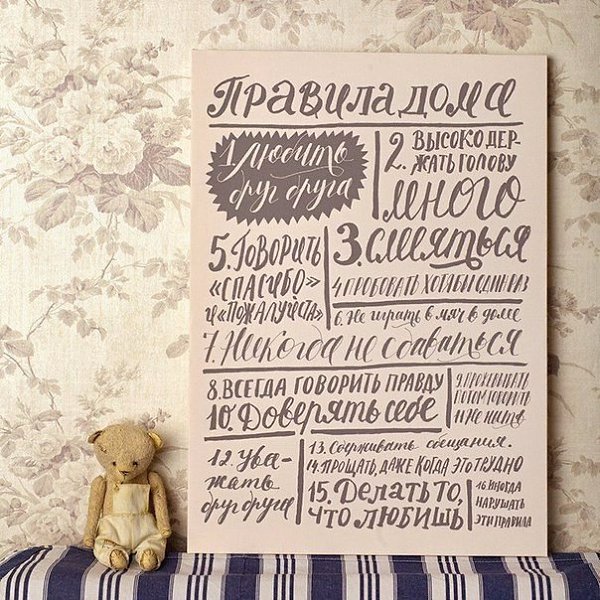 Правила дома
1. Любить
друг друга
2. Высоко дер-
жать голову
3. много
смеяться
4. пробовать хотя бы один раз
5. Говорить
«спасибо»
и «пожалуйста»
6. Не играть в мяч в доме
7. Никогда не сдаваться
8. Всегда говорить правду
9. Прожевывать
потом говорить
10. Доверять себе
11. Не ныть
12. Ува-
жать
друг друга
13. Сдерживать обещания.
14. Прощать, даже когда это трудно
15. Делать то,
что любишь
16. Иногда
нарушать
эти правила